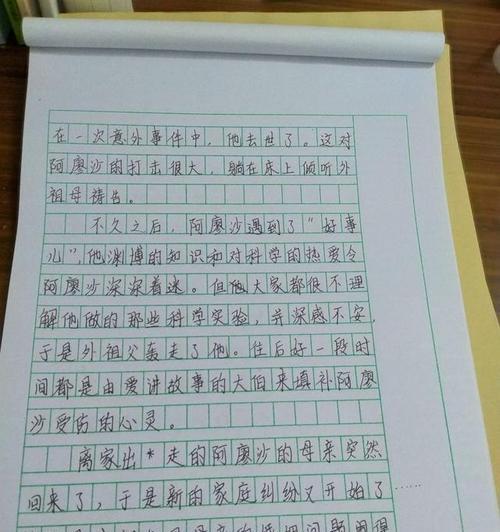 在一次意外事件中，他去世了。这对
阿廖沙的打击很大，躺在床上倾听外
祖母祷告。
不久之后，阿廖沙遇到了“好事
儿”，他渊博的知识和对科学的热爱令
阿廖沙深深着迷。但他大家都很不理
解他做的那些科学实验，并深感不安，
于是外祖父轰走了他。往后好一段时
间都是由爱讲故事的大伯来填补阿廖
沙受伤的心灵。
离家出*走的阿廖沙的母亲突然
回来了，于是新的家庭纠纷又开始了……